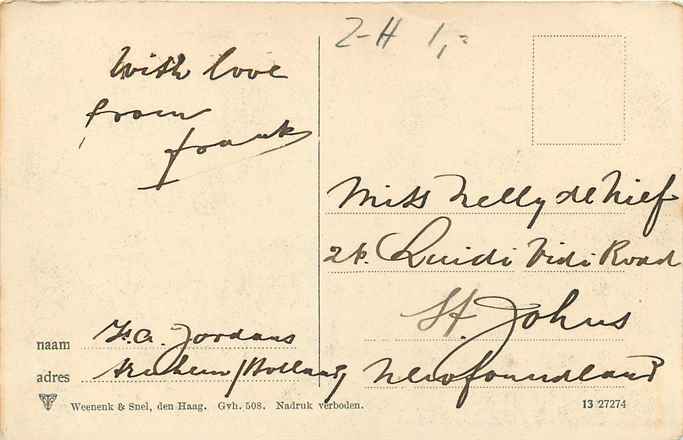 With love
from
Frank
Z-H 1,=
Miss Nelly de Nief
24. Quidi Vidi Road
St. Johns
Newfoundland
naam Fr. G. Jordans
adres Arnhem/Holland
Weenenk & Snel, den Haag. Gvh. 508. Nadruk verboden.
13 27274